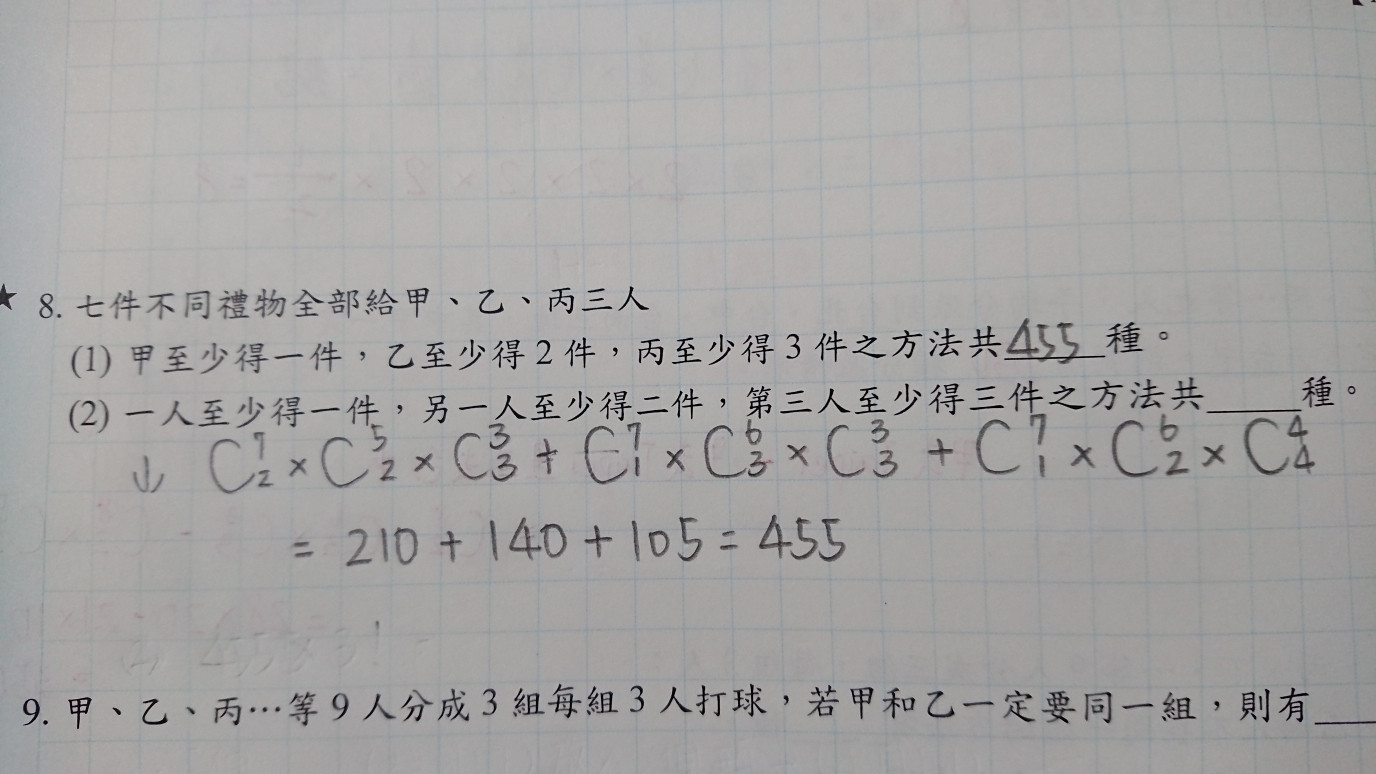 ★ 8. 七件不同禮物全部給甲、乙、丙三人
(1) 甲至少得一件，乙至少得2件，丙至少得3件之方法共455種。
(2) 一人至少得一件，另一人至少得二件，第三人至少得三件之方法共_____種。
↓ C⁷₂ × C⁵₂ × C³₃ + C⁷₁ × C⁶₃ × C³₃ + C⁷₁ × C⁶₂ × C⁴₄
= 210 + 140 + 105 = 455
9. 甲、乙、丙…等9人分成3組每組3人打球，若甲和乙一定要同一組，則有____